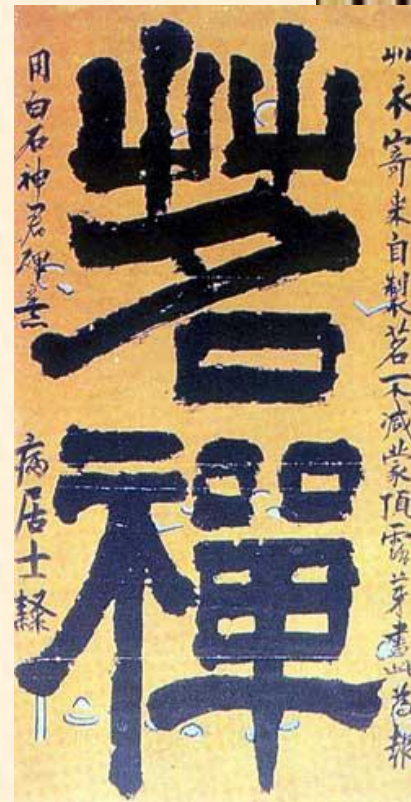 艸衣寄來自製茗不減蒙頂露芽書此爲報
茗禪
用白石神君碑意
病居士隸